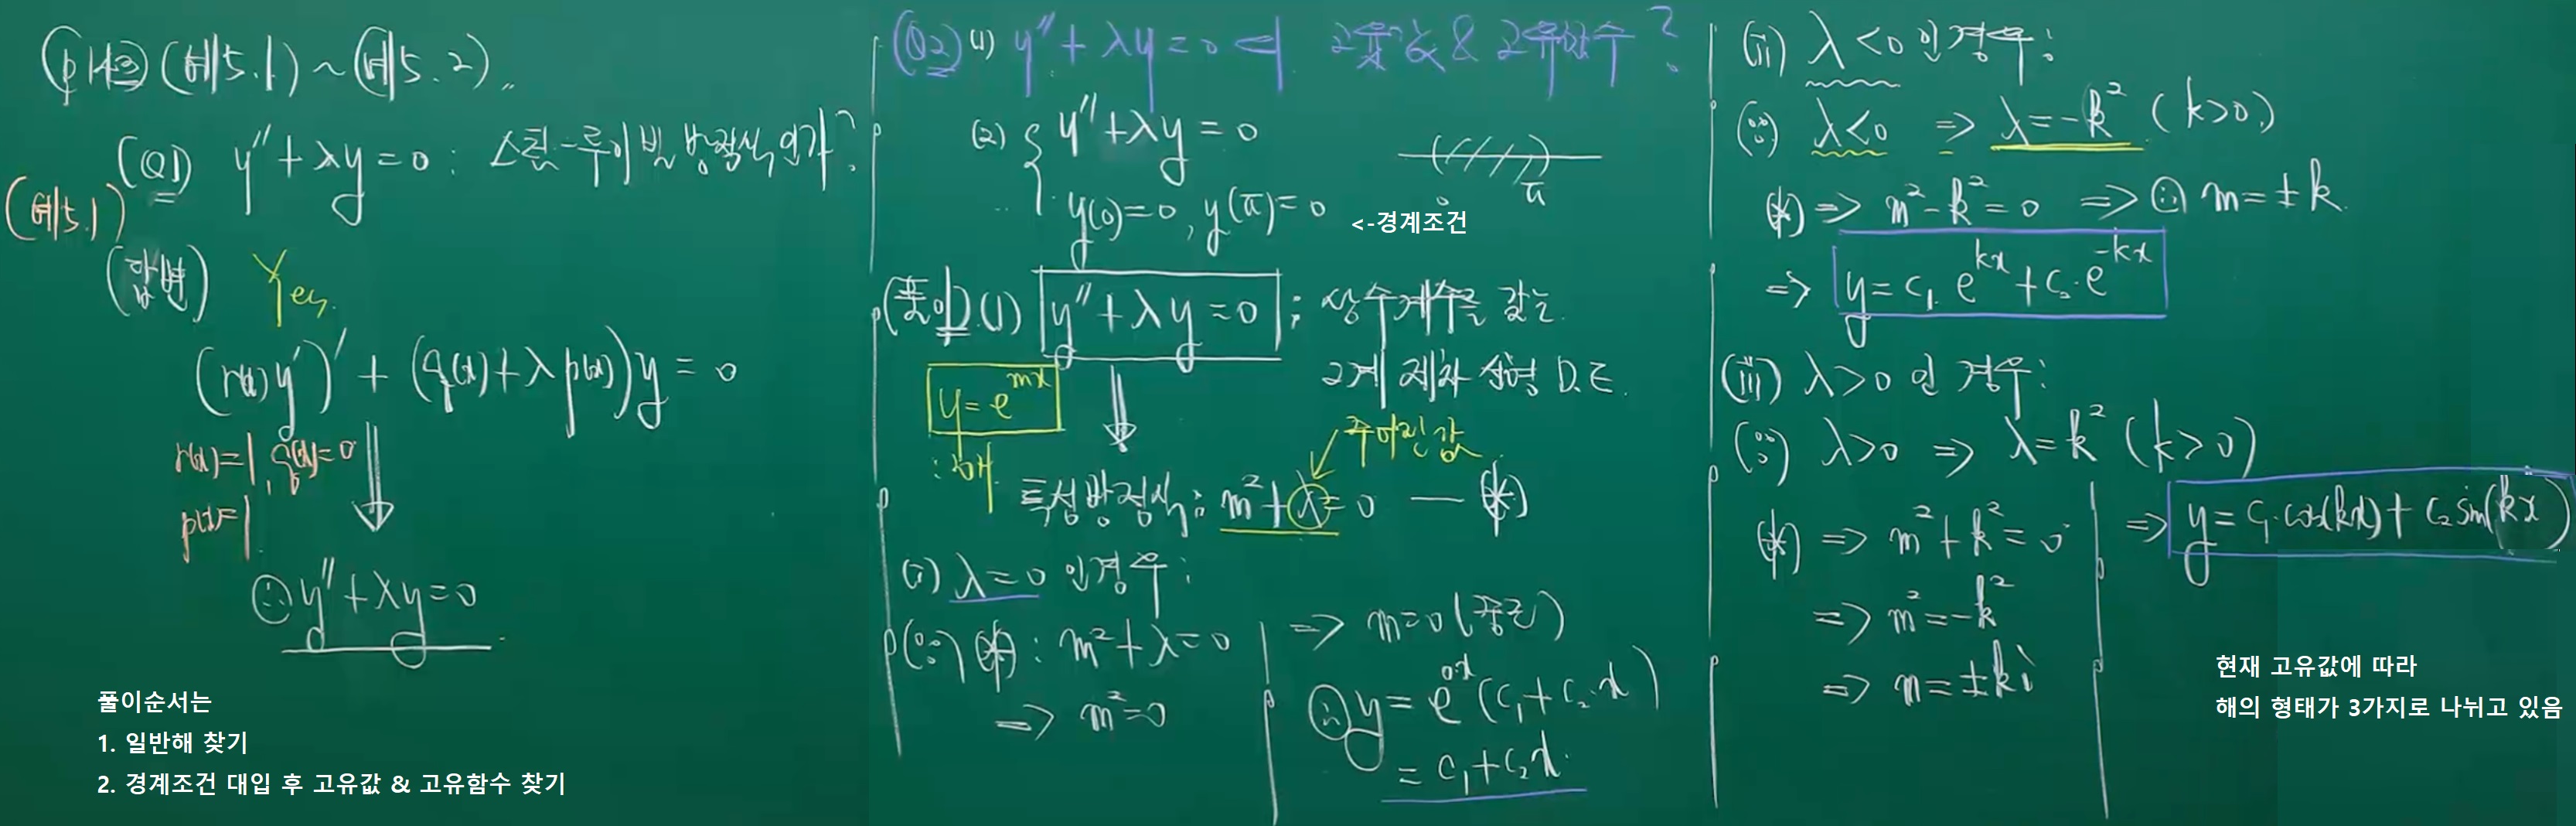 (p143) (예5.1) ~ (예5.2)..
(Q1) y'' + λy = 0 : 스튐-루이빌 방정식인가?
(예5.1)
(답변) Yes.
(r(x)y')' + (q(x) + λp(x))y = 0
r(x)=1, q(x)=0
p(x)=1
∴ y'' + λy = 0
풀이순서는
1. 일반해 찾기
2. 경계조건 대입 후 고유값 & 고유함수 찾기
(Q2) (1) y'' + λy = 0 의 고윳값 & 고유함수?
(2) { y'' + λy = 0
y(0)=0, y(π)=0 <-경계조건
0 π
(풀이) (1) y'' + λy = 0 ; 상수계수를 갖는
2계 제차 선형 D.E.
y = e^{mx}
: 해
주어진 값
특성방정식: m² + λ = 0 — (*)
(i) λ = 0 인 경우:
(∵) (*) : m² + λ = 0
⇒ m² = 0
⇒ m = 0 (중근)
∴ y = e^{0·x}(c₁ + c₂·x)
= c₁ + c₂x.
(ii) λ < 0 인 경우:
(∵) λ < 0 ⇒ λ = -k² (k>0)
(*) ⇒ m² - k² = 0 ⇒ ∴ m = ±k.
⇒ y = c₁·e^{kx} + c₂·e^{-kx}
(iii) λ > 0 인 경우:
(∵) λ > 0 ⇒ λ = k² (k>0)
(*) ⇒ m² + k² = 0
⇒ m² = -k²
⇒ m = ±ki
⇒ y = c₁·cos(kx) + c₂sin(kx)
현재 고유값에 따라
해의 형태가 3가지로 나뉘고 있음